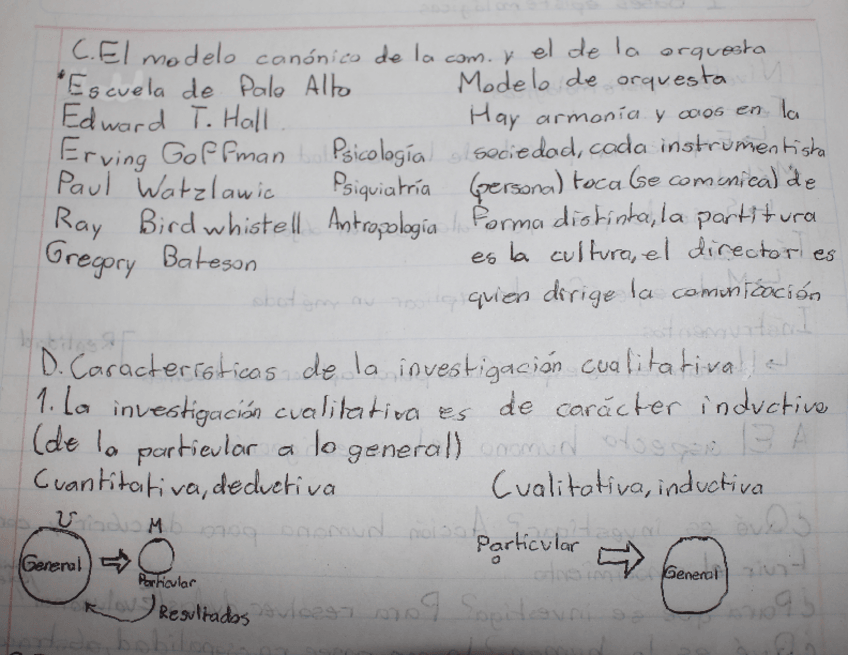 C. El modelo canónico de la com. y el de la orquesta
Escuela de Palo Alto
Edward T. Hall
Erving Goffman Psicología
Paul Watzlawic Psiquiatría
Ray Birdwhistell Antropología
Gregory Bateson
Modelo de orquesta
Hay armonía y caos en la
sociedad, cada instrumentista
(persona) toca (se comunica) de
forma distinta, la partitura
es la cultura, el director es
quien dirige la comunicación
D. Características de la investigación cualitativa
1. La investigación cualitativa es de carácter inductivo
(de lo particular a lo general)
Cuantitativa, deductiva
Cualitativa, inductiva
U
M
General
Particular
Resultados
Particular
General